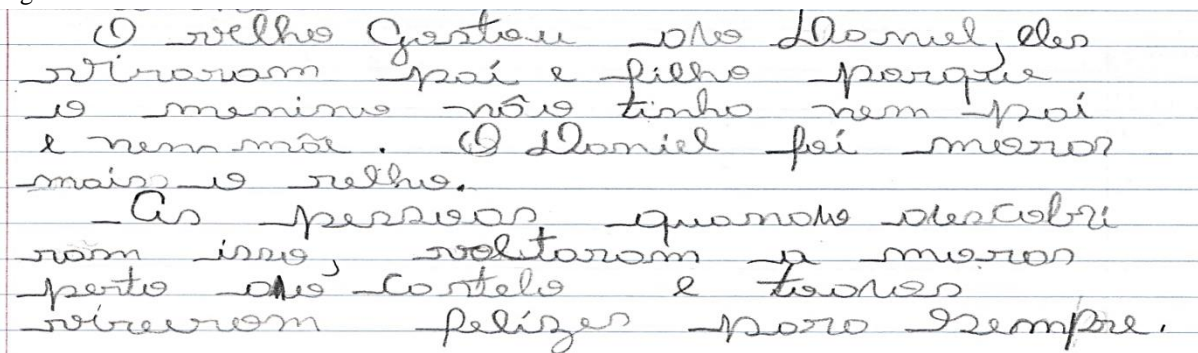 O velho Gostou do Daniel, eles
viraram pai e filho porque
o menino não tinha nem pai
e nem mãe. O Daniel foi morar
mais o velho.
As pessoas quando descobri
ram isso, voltaram a morar
perto do Castelo e todos
viveram felizes para sempre.